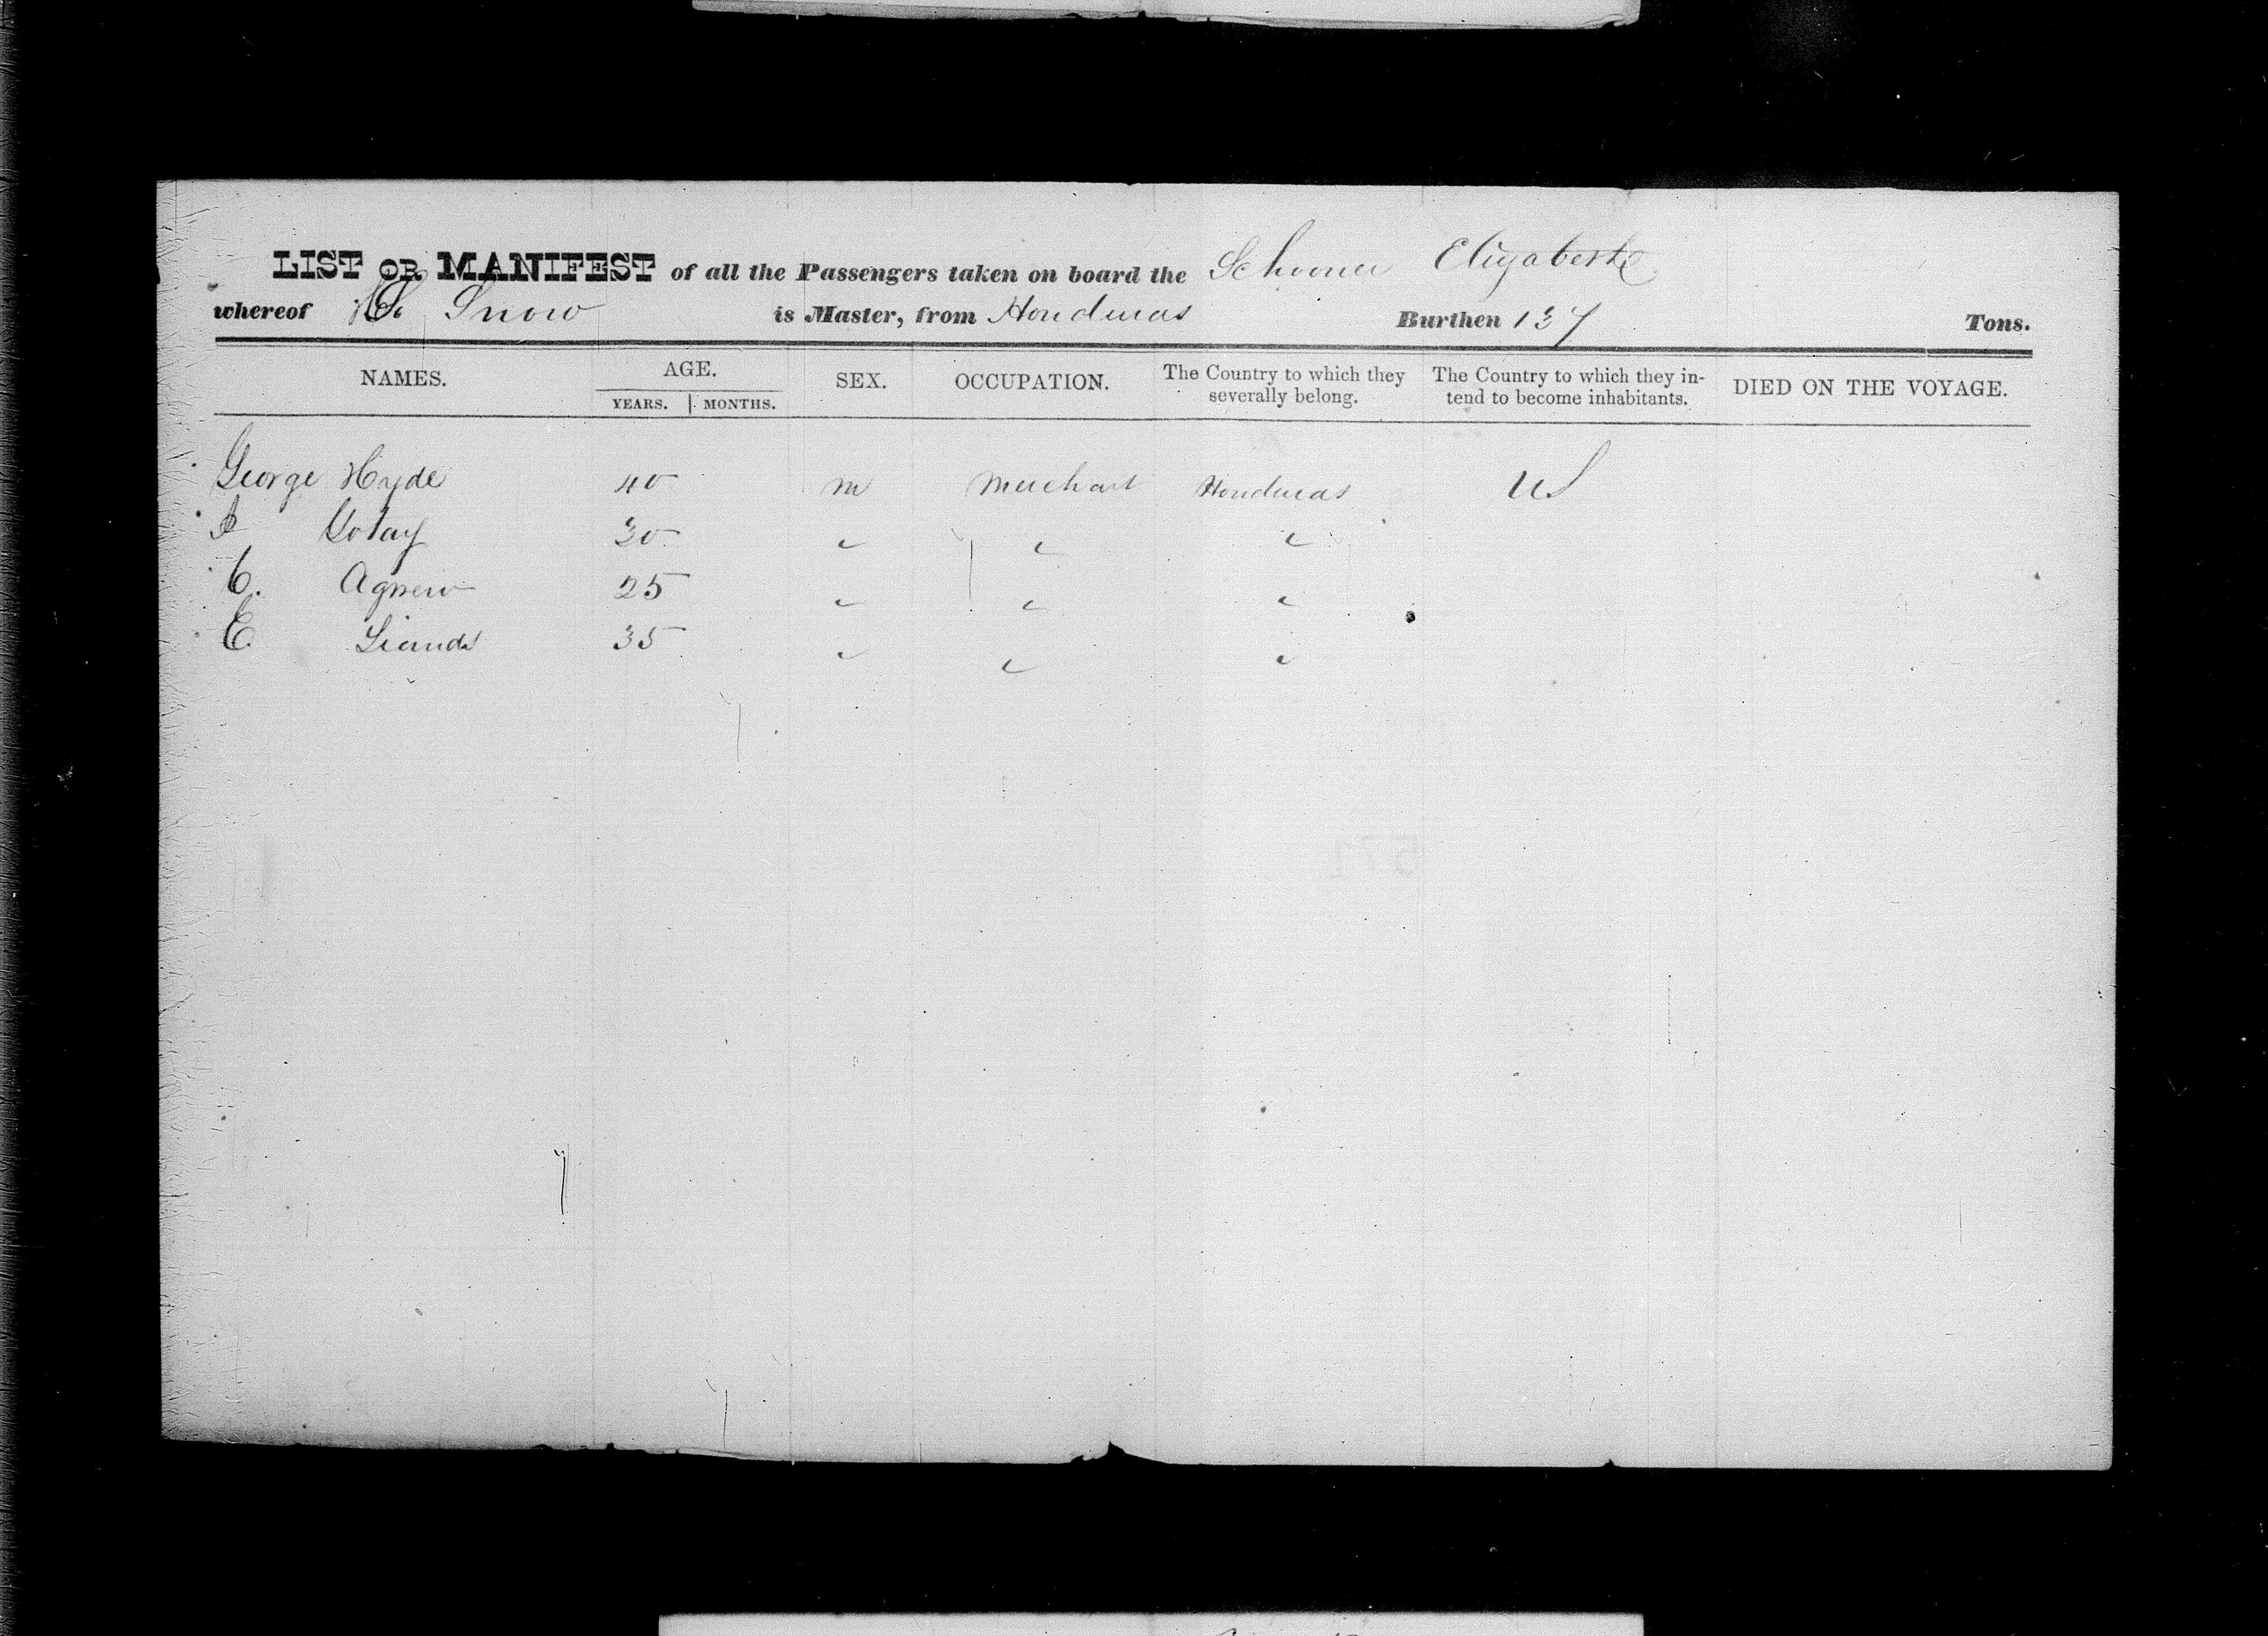 LIST OR MANIFEST of all the Passengers taken on board the Schooner Elizabeth
whereof Snow is Master, from Honduras Burthen 137 Tons.
NAMES. AGE. SEX. OCCUPATION. The Country to which they severally belong. The Country to which they intend to become inhabitants. DIED ON THE VOYAGE.
YEARS. MONTHS.
George Hyde 40 m Merchant Honduras US
30 " " "
C. Agnew 25 " " "
E. 35 " " "